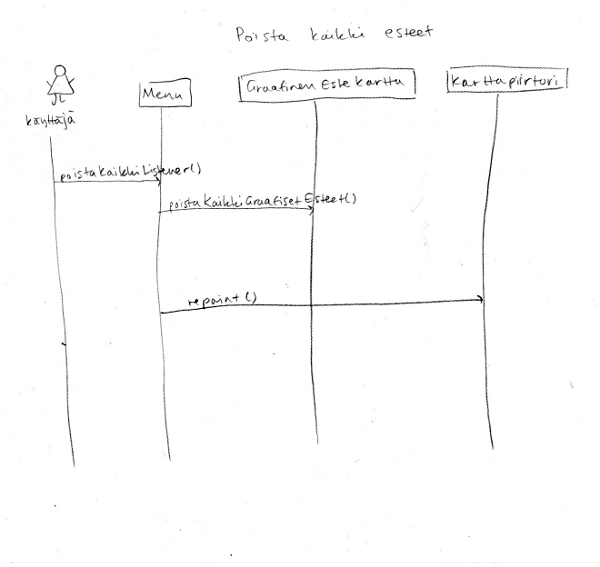 Poista kaikki esteet
käyttäjä
Menu
Graafinen Estekartta
Karttapiirturi
poistaKaikkiListener()
poistaKaikkiGraafisetEsteet()
repaint()